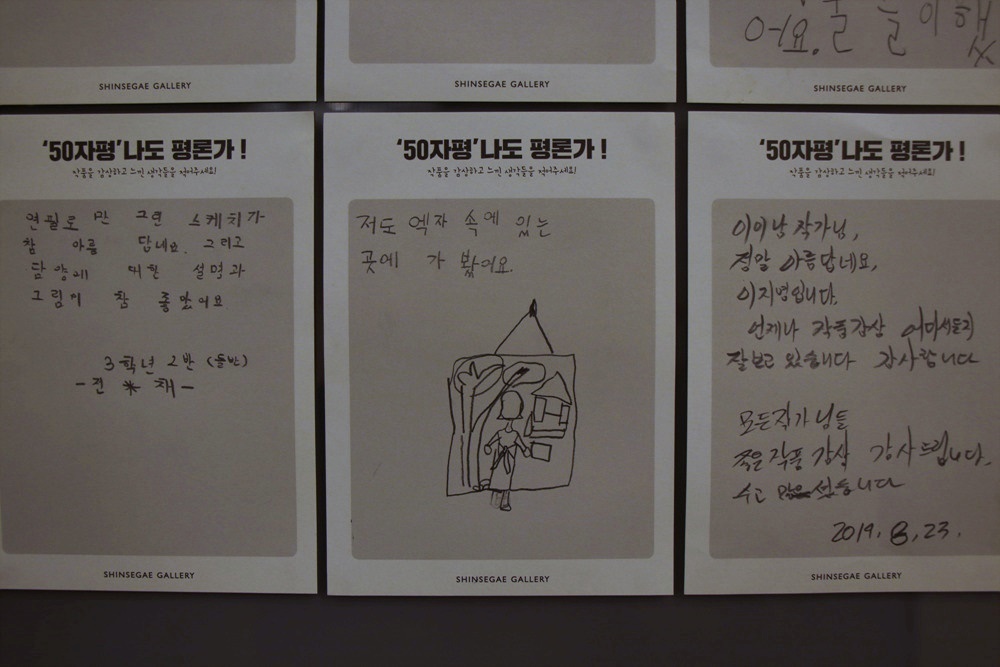 어요.
SHINSEGAE GALLERY
SHINSEGAE GALLERY
SHINSEGAE GALLERY
'50자평'나도 평론가!
작품을 감상하고 느낀 생각들을 적어주세요!
연필로 만 그린 스케치가
참 아름 답네요. 그리고
담양에 대한 설명과
그림이 참 좋았어요
3학년 2반 (들반)
SHINSEGAE GALLERY
'50자평'나도 평론가!
작품을 감상하고 느낀 생각들을 적어주세요!
저도 엑자 속에 있는
곳에 가 봤어요.
SHINSEGAE GALLERY
'50자평'나도 평론가!
작품을 감상하고 느낀 생각들을 적어주세요!
이이남 작가님,
정말 아름답네요,
이지영입니다.
언제나 작품감상
잘보고 있습니다 감사합니다
모든작가님들
작품 감상 감사드립니다.
수고 많으셨습니다
2019. 8, 23.
SHINSEGAE GALLERY